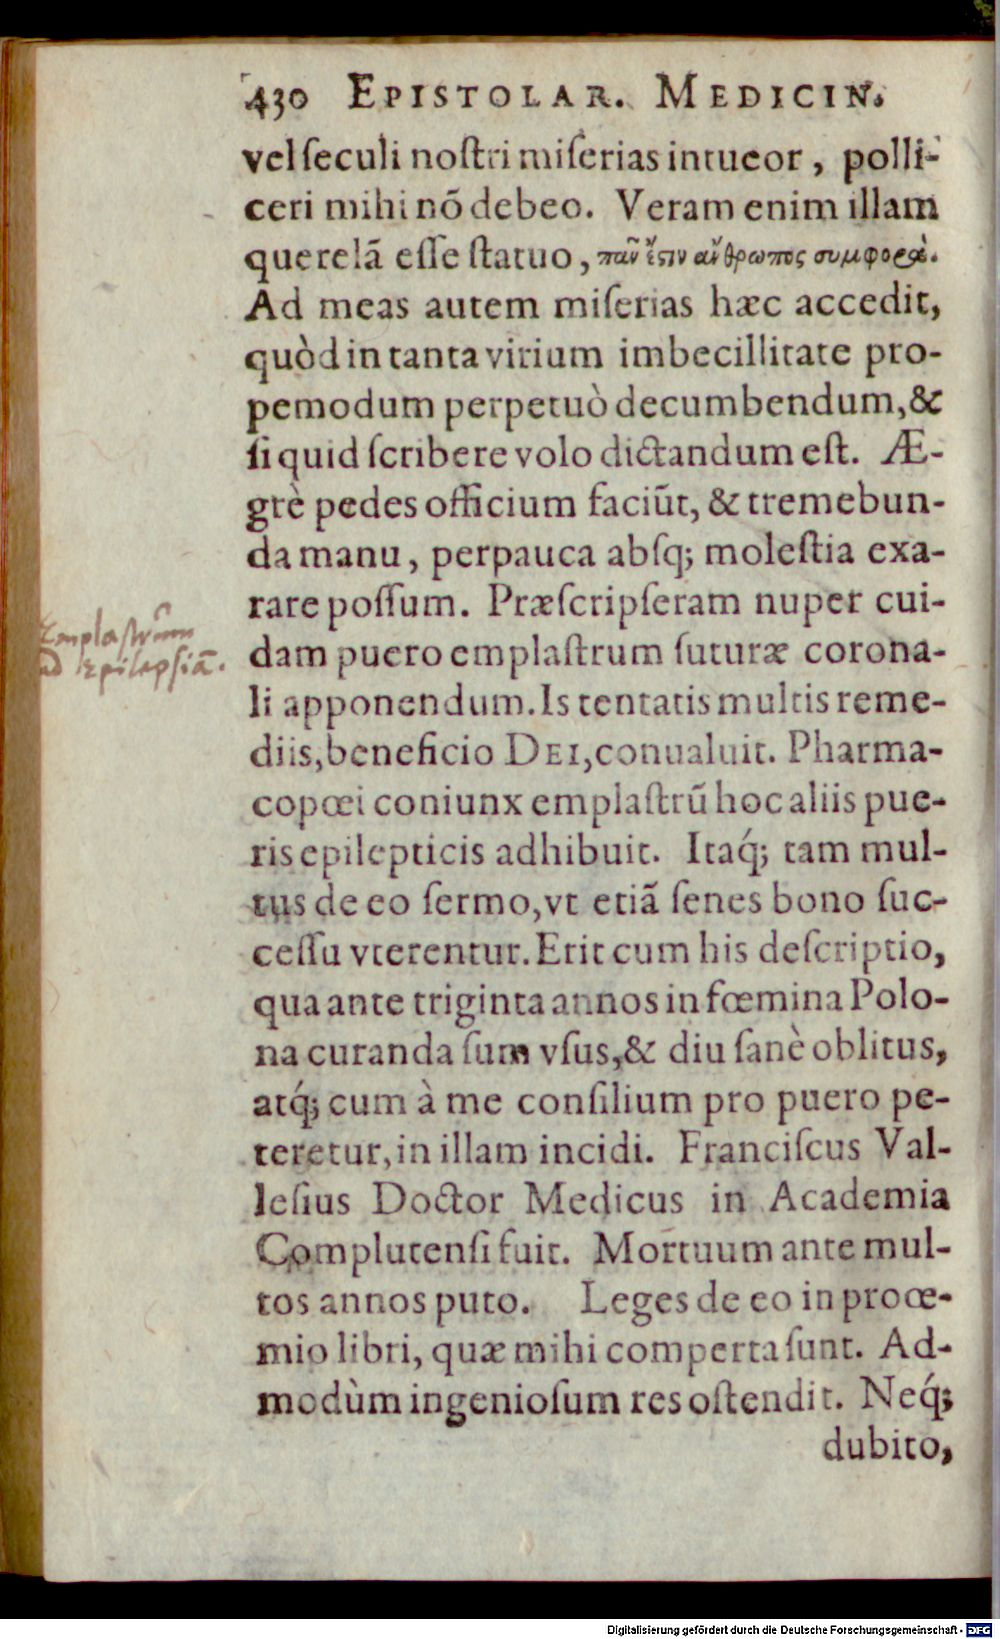 430 EPISTOLAR. MEDICIN.
vel ſeculi noſtri miſerias intueor, polli-
ceri mihi nõ debeo. Veram enim illam
querelã eſſe ſtatuo, πᾶν ἔςιν ἄνθρωπος συμφορὰ.
Ad meas autem miſerias hæc accedit,
quòd in tanta virium imbecillitate pro-
pemodum perpetuò decumbendum, &
ſi quid ſcribere volo dictandum eſt. Æ-
grè pedes officium faciũt, & tremebun-
da manu, perpauca abſq; moleſtia exa-
rare poſſum. Præſcripſeram nuper cui-
Emplastrum
ad Epilepsiã.
dam puero emplaſtrum ſuturæ corona-
li apponendum. Is tentatis multis reme-
diis, beneficio DEI, conualuit. Pharma-
copœi coniunx emplaſtrũ hoc aliis pue-
ris epilepticis adhibuit. Itaq́; tam mul-
tus de eo ſermo, vt etiã ſenes bono ſuc-
ceſſu vterentur. Erit cum his deſcriptio,
qua ante triginta annos in fœmina Polo-
na curanda ſum vſus, & diu ſanè oblitus,
atq́; cum à me conſilium pro puero pe-
teretur, in illam incidi. Franciſcus Val-
leſius Doctor Medicus in Academia
Complutenſi fuit. Mortuum ante mul-
tos annos puto. Leges de eo in proœ-
mio libri, quæ mihi comperta ſunt. Ad-
modùm ingenioſum res oſtendit. Neq́;
dubito,
Digitalisierung gefördert durch die Deutsche Forschungsgemeinschaft - DFG